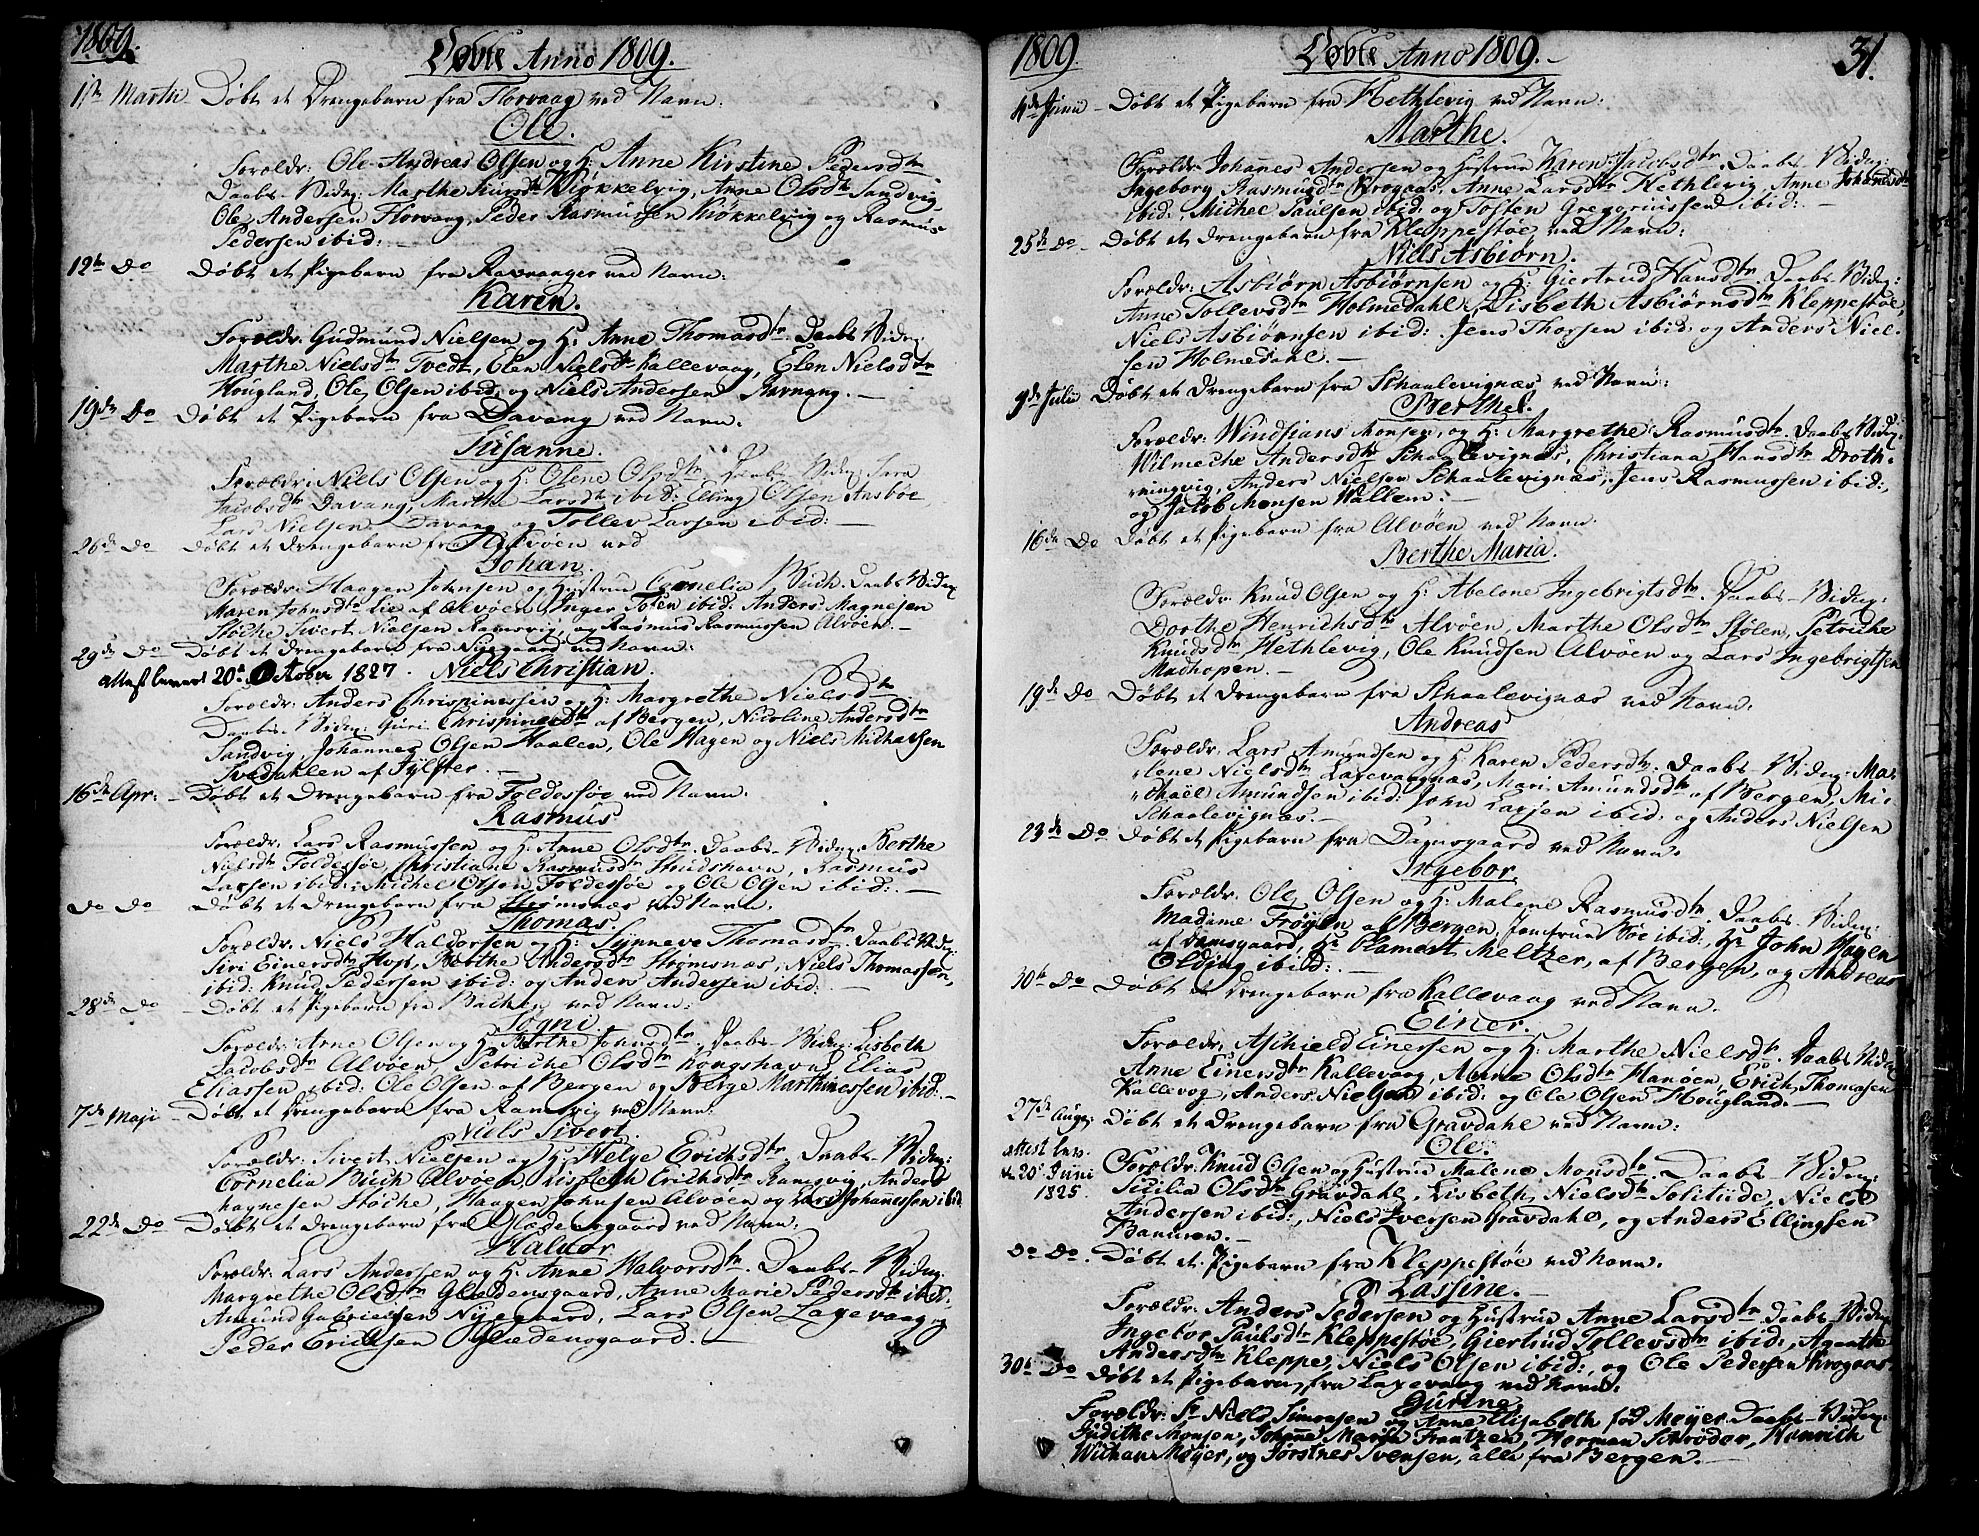 1809.
Døbte Anno 1809.
1ste Martii Døbt et Drengebarn fra Florvaag ved Navn:
Ole.
Forældr: Ole Andreas Olsen og H: Anne Kirstine Pedersdtr
Daabs-Vidn: Marthe Knudsdtr Kiøkkelvig, Anne Olsdtr Sandvig,
Ole Andersen Florvaag, Peder Rasmussen Kiøkkelvig og Rasmus
Pedersen ibid: —
12te Do Døbt et Pigebarn fra Ravnanger ved Navn:
Karen.
Forældr: Gudmund Nielsen og H: Anne Thomasdtr. Daabs Vidn:
Marthe Nielsdtr Tvedt, Elen Nielsdtr Kallevaag, Elen Nielsdtr
Hougland, Ole Olsen ibid: og Niels Andersen. —
19de Do Døbt et Pigebarn fra Davang ved Navn:
Susanne.
Forældr: Niels Olsen og H: Olene Olsdtr Daabs Vidn:
Jacobsdtr Davang, Marthe Larsdtr ibid: Elling Olsen Ansbøe
Lars Nielsen Davang og Tollev Larsen ibid: —
26de Do Døbt et Drengebarn fra Alvøen ved
Johan.
Forældr: Haagen Johnsen og Hustrue Cornelia Buch. Daabs Vidn:
Maren Johnsdtr Lie af Alvøen, Inger ibid: Anders Magnesen
Støche Sivert Nielsen Ramsvig, og Rasmus Rasmussen Alvøen. —
29de Do Døbt et Drengebarn fra Nyegaard ved Navn:
Attest leveret 20de October 1827. Niels Christian.
Forældr: Anders Chrispinessen og H: Margrethe Nielsdtr
Daabs-Vidn: Guri Chrispinesdtr af Bergen, Nicoline Andersdtr
Sandvig, Johannes Olsen Haalen, Ole Hagen og Niels Michaelsen
af —
16de Apr: Døbt et Drengebarn fra Foldessøe ved Navn:
Rasmus
Forældr: Lars Rasmussen og H: Anne Olsdtr. Daabs-Vidn: Berthe
Nielsdtr Foldessøe, Christiane Rasmusdtr Strudshavn, Rasmus
Larsen ibid: Michel Olsen Foldessøe og Ole Olsen ibid: —
Do Do Døbt et Drengebarn fra Strømsnæs ved Navn:
Thomas.
Forældr: Niels Haldorsen og H: Synneve Thomasdtr. Daabs Vidn:
Siri Einersdtr Hop, Berthe Andersdtr Strømsnæs, Niels Thomassen,
ibid: Knud Pedersen ibid: og Anders Andersen ibid: —
28de Do Døbt et Pigebarn fra Bachen ved Navn:
Sogni.
Forældr: Arne Olsen og H: Berthe Johnsdtr. Daabs-Vidn: Lisbeth
Jacobsdtr Alvøen, Petriche Olsdtr Kongshavn, Elias
Eliassen ibid: Ole Olsen af Bergen og Børge Marthinessen ibid: —
7de Maji Døbt et Drengebarn fra Ramsvig ved Navn:
Niels Sivert.
Forældr: Sivert Nielsen og H: Helge Erichsdtr. Daabs-Vidn:
Cornelia Buch Alvøen, Lisbeth Erichsdtr Ramsvig, Anders
Magnesen Støche, Haagen Johnsen Alvøen og Lars Johannessen ibid:
22de Do Døbt et Drengebarn fra Glædensgaard ved Navn:
Halvor
Forældr: Lars Andersen og H: Anne Halvorsdtr. Daabs-Vidn:
Margrethe Olsdtr Glædensgaard, Anne Marie Pedersdtr ibid:
Amund Gabrielsen Nyegaard, Lars Olsen Laxevaag og
Peder Erichsen Glædensgaard. —
1809.
Døbte Anno 1809. —
31.
4de Junii Døbt et Pigebarn fra Hethlevig ved Navn:
Marthe.
Forældr: Johannes Andersen og Hustrue Karen Jacobsdtr Daabs-Vidn:
Ingeborg Rasmusdtr Krogaas, Anne Larsdtr Hethlevig, Anne Johannesdtr
ibid: Michel Paulsen ibid: og Tosten Gregoriussen ibid: —
25de Do Døbt et Drengebarn fra Kleppestøe ved Navn:
Niels Asbiørn.
Forældr: Asbiørn Asbiørnsen og H: Giertrud Hansdtr Daabs-Vidn:
Anne Tollevsdtr Holmedahl, Lisbeth Asbiørnsdtr Kleppestøe,
Niels Asbiørnsen ibid: Jens Thorsen ibid: og Anders Niel-
sen Holmedahl. —
9de Julii Døbt et Drengebarn fra Schaalevignæs ved Navn:
Berthel.
Forældr: Windsians Monsen, og H: Margrethe Rasmusdtr. Daabs Vidn:
Wilmeche Andersdtr Schaalevignæs, Christiana Hansdtr Droth-
ningvig, Anders Nielsen Schaalevignæs, Jens Rasmussen ibid:,
og Jacob Monsen Wallem. —
16de Do Døbt et Pigebarn fra Alvøen ved Navn:
Berthe Maria.
Forældr: Knud Olsen og H: Abelone Ingebrigtsdtr. Daabs-Vidn:
Dorthe Henrichsdtr Alvøen, Marthe Olsdtr Stølen, Petriche
Knudsdtr Hethlevig, Ole Knudsen Alvøen og Lars Ingebrigtsen
Madhopen. —
19de Do Døbt et Drengebarn fra Schaalevignæs ved Navn:
Andreas
Forældr: Lars Amundsen og H: Karen Pedersdtr. Daabs-Vidn: Ma-
lene Nielsdtr Laxevaagnæs, Mari Amundsdtr af Bergen, Mi-
chael Amundsen ibid: John Larsen ibid: og Anders Nielsen
Schaalevignæs. —
23de Do Døbt et Pigebarn fra Damsgaard ved Navn:
Ingebor.
Forældr: Ole Olsen og H: Malene Rasmusdtr. Daabs-Vidn:
Madame Frøyen af Bergen, Jomfrue Bøe ibid:, Hr John Hagen
af Damsgaard, Hr Clamest Meltzer, af Bergen, og Andreas
Olding ibid: —
30te Do Døbt et Drengebarn fra Kallevaag ved Navn.
Einer.
Forældr: Aschield Einersen og H: Marthe Nielsdtr. Daabs Vidn:
Anne Einersdtr Kallevaag, Anne Olsdtr Hanøen, Erich Thomasen
Kallevog, Anders Nielsen ibid: og Ole Olsen Hougland. —
27de Aug: Døbt et Drengebarn fra Gravdahl ved Navn:
Ole.
Attest lev.
d. 20de Juni
1825.
Forældr: Knud Olsen og Hustrue Malene Monsdtr. Daabs-Vidn:
Sicilia Olsdtr Gravdahl, Lisbeth Nielsdtr Solitude, Niels
Andersen ibid:, Niels Iversen Gravdahl, og Anders Ellingsen
—
Do Do. Døbt et Pigebarn fra Kleppestøe ved Navn.
Lassine. —
Forældr: Anders Pedersen og Hustrue Anne Larsdtr Daabs-Vidn:
Ingebor Paulsdtr Kleppestøe, Giertrud Tollevsdtr ibid:, Agaathe
Andersdtr Kleppe, Niels Olsen ibid: og Ole Pedersen Krogaas
30te Do Døbt et Pigebarn fra Laxevaag ved Navn.
Gurine
Forældr: Sr Niels Simonsen og Anne Elisabeth fød Meyer Daabs-Vidn:
Judithe Monsen, Johanne Maria Frantzen, Herman Schrøder, Henrich
Wilhan Meyer, og Torstnes Svensen, alle fra Bergen. —